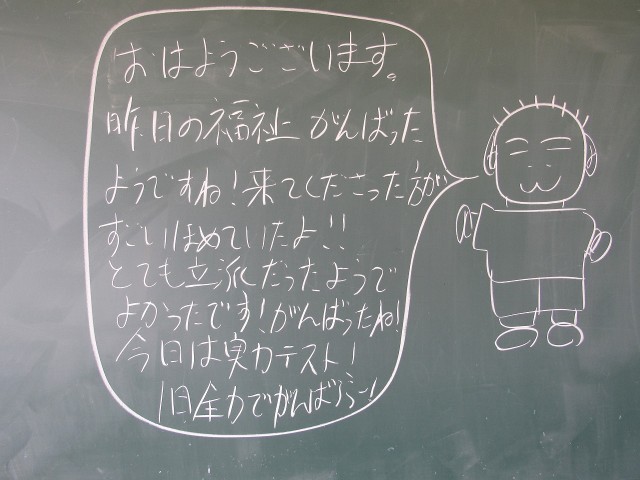 おはようございます。
昨日の福祉がんばった
ようですね!来てくださった方が
すごいほめていたよ!!
とても立派だったようで
よかったです!がんばったね!
今日は実力テスト!
1日全力でがんばろう!